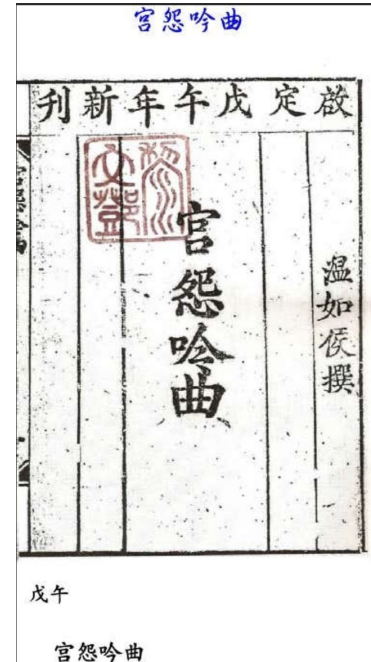 宮怨吟曲
啟定戊午年新刊
温如侯撰
宮怨吟曲
戊午
宮怨吟曲